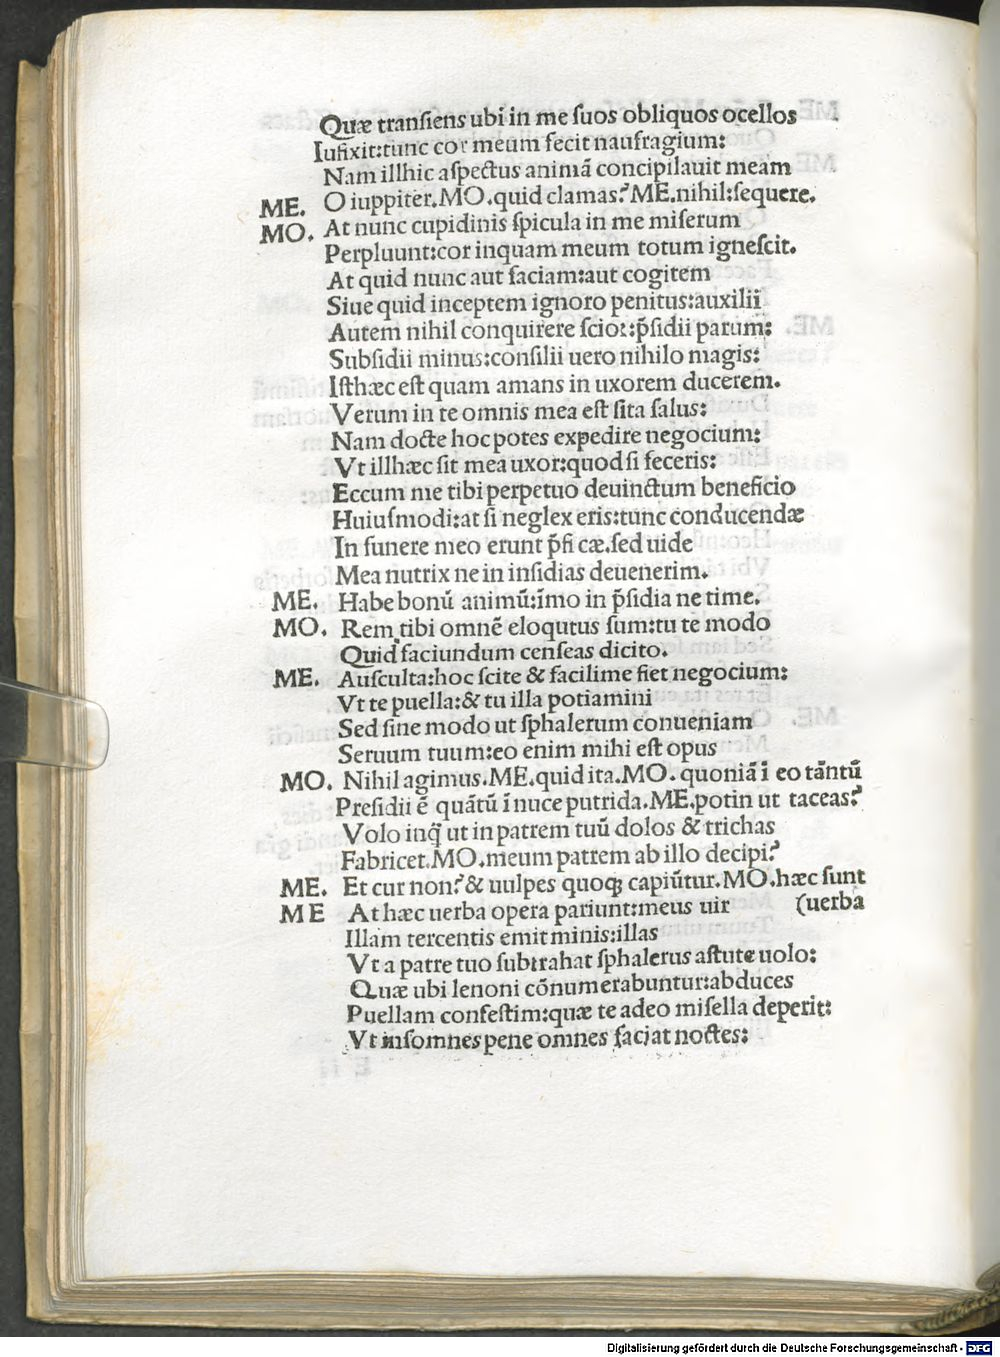 Quæ tranſiens ubi in me ſuos obliquos ocellos
Iufixit:tunc cor meum fecit naufragium:
Nam illhic aſpectus animā concipilauit meam
ME. O iuppiter.MO.quid clamas?ME.nihil:ſequere.
MO. At nunc cupidinis ſpicula in me miſerum
Perpluunt:cor inquam meum totum igneſcit.
At quid nunc aut faciam:aut cogitem
Siue quid inceptem ignoro penitus:auxilii
Autem nihil conquirere ſcio:p̄ſidii parum:
Subſidii minus:conſilii uero nihilo magis:
Iſthæc eſt quam amans in uxorem ducerem.
Verum in te omnis mea eſt ſita ſalus:
Nam docte hoc potes expedire negocium:
Vt illhæc ſit mea uxor:quod ſi feceris:
Eccum me tibi perpetuo deuinctum beneficio
Huiuſmodi:at ſi neglex eris:tunc conducendæ
In funere meo erunt p̄fi cæ.ſed uide
Mea nutrix ne in inſidias deuenerim.
ME. Habe bonū animū:īmo in p̄ſidia ne time.
MO. Rem tibi omnē eloqutus ſum:tu te modo
Quid faciundum cenſeas dicito.
ME. Auſculta:hoc ſcite & facilime fiet negocium:
Vt te puella:& tu illa potiamini
Sed ſine modo ut ſphalerum conueniam
Seruum tuum:eo enim mihi eſt opus
MO. Nihil agimus.ME.quid ita.MO. quoniā ī eo tātū
Preſidii ē quātū ī nuce putrida.ME.potin ut taceas?
Volo inq̄ ut in patrem tuū dolos & trichas
Fabricet.MO.meum patrem ab illo decipi?
ME. Et cur non?& uulpes quoqꝫ capiūtur.MO.hæc ſunt
(uerba
ME At hæc uerba opera pariunt:meus uir
Illam tercentis emit minis:illas
Vt a patre tuo ſubtrahat ſphalerus aſtute uolo:
Quæ ubi lenoni cōnumerabuntur:abduces
Puellam confeſtim:quæ te adeo miſella deperit:
Vt inſomnes pene omnes faciat noctes:
Digitalisierung gefördert durch die Deutsche Forschungsgemeinschaft - DFG